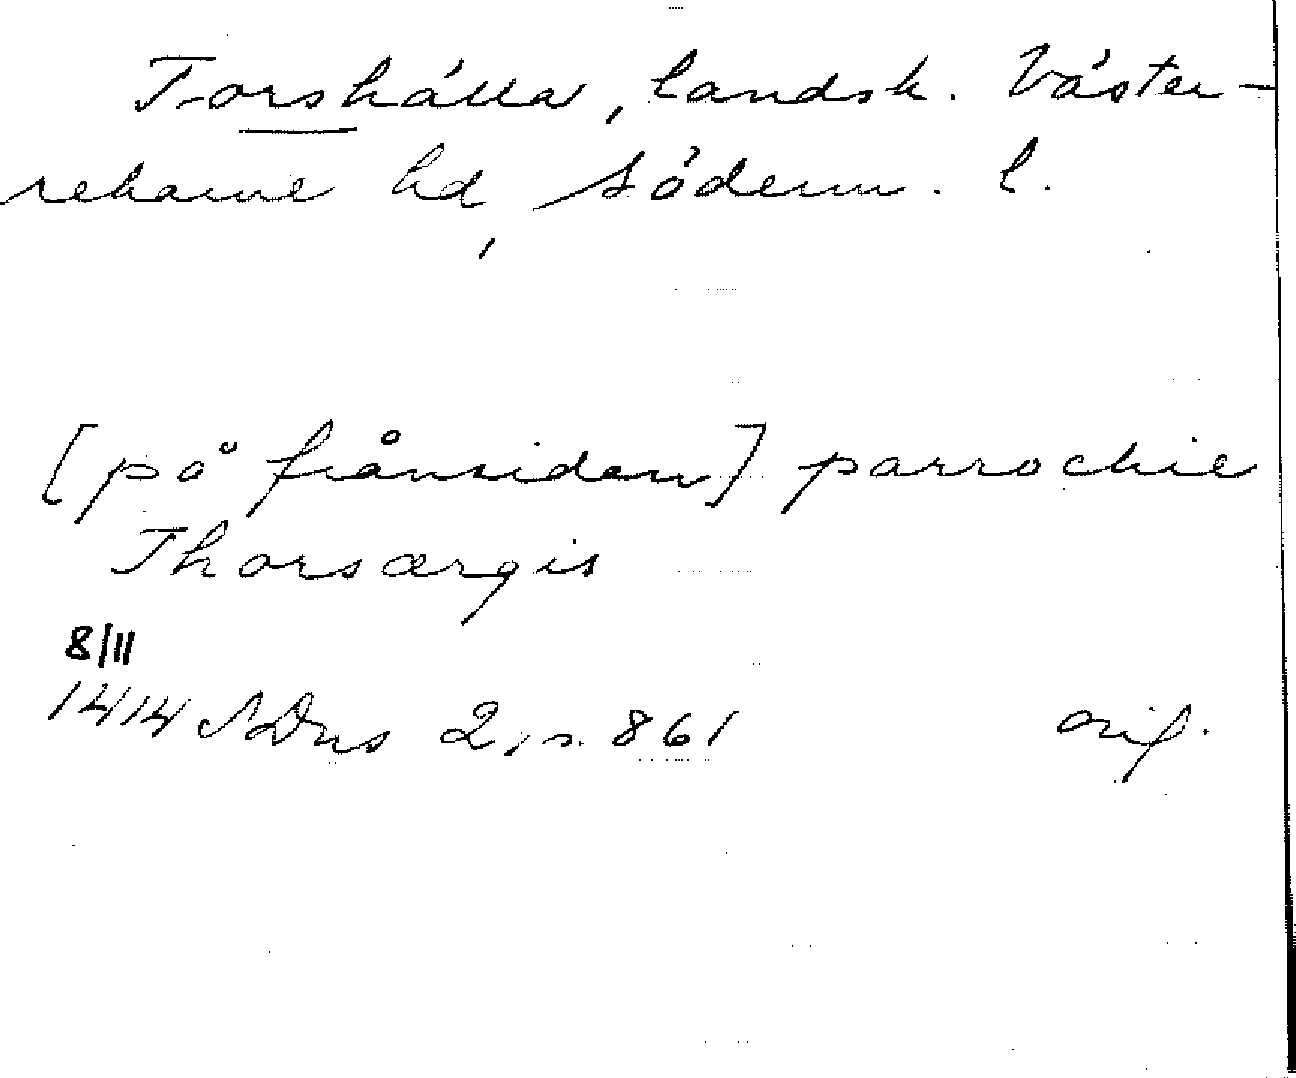 Torshälla, landsk. Väster-
rekarne hd, Söderm. l.
[på frånsidan] parrochie
Thorsærgis
8/11
1414 SDns 2, s. 861 orig.